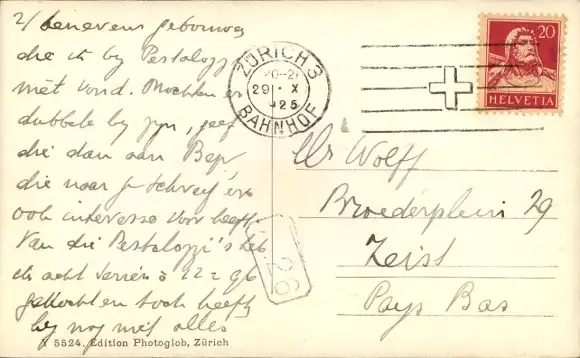 2/ benevens gebouwen
die ik by Pestalozzi
niet vond. Mochten er
dubbele by zyn, geef
die dan aan Bep,
die naar je schreef er
ook interesse voor heeft
Van die Pestalozzi's heb
ik acht series à
gekocht en toch heeft
hy nog niet alles
X 5524. Edition Photoglob, Zürich
ZÜRICH 3
29. X
25
BAHNHOF
20
HELVETIA
Wolff
Broederplein 29
Zeist
Pays Bas
26